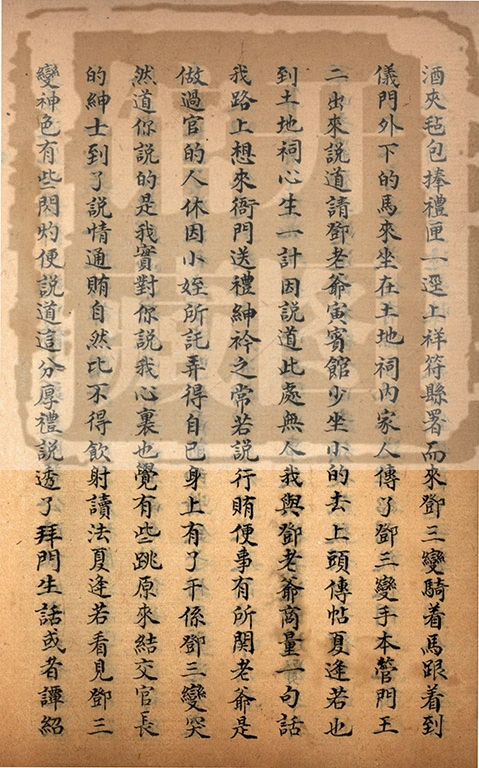 酒夾毡包捧禮匣一逕上祥符縣署而來鄧三變騎着馬跟着到
儀門外下的馬來坐在土地祠內家人傳了鄧三變手本管門王
二出來說道請鄧老爺寅賓館少坐小的去上頭傳帖夏逢若也
到土地祠心生一計因說道此處無人我與鄧老爺商量一句話
我路上想來衙門送禮紳衿之常若說行賄便事有所関老爺是
做過官的人休因小姪所託弄得自己身上有了干係鄧三變突
然道你說的是我實對你說我心裏也覺有些跳原來結交官長
的紳士到了說情通賄自然比不得飲射讀法夏逢若看見鄧三
變神色有些閃灼便說道這分厚禮說透了拜門生話或者譚紹